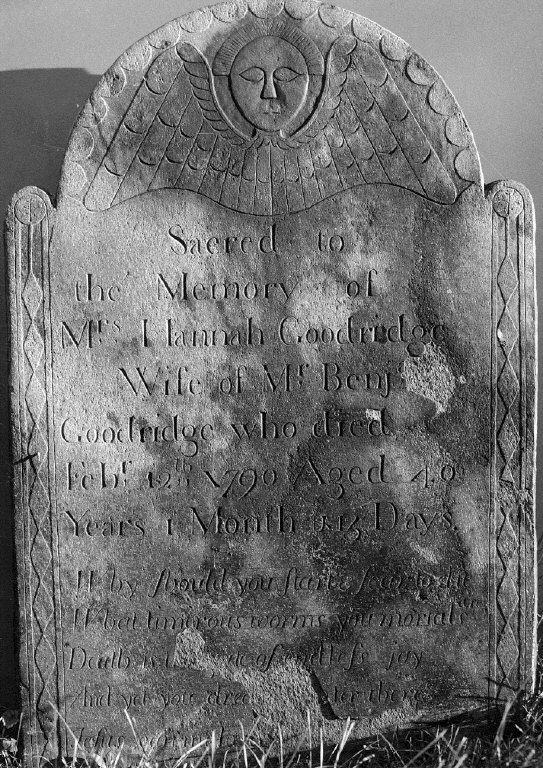 Sacred to
the Memory of
Mrs Hannah Goodridge
Wife of Mr Benj
Goodridge who died
Febr 12th 1790 Aged 40
Years 1 Month & 13 Days.
Why should you start & fear to die
What timorous worms you mortals are
Death is the of endleſs joy
And yet you dread enter there
Jeſus